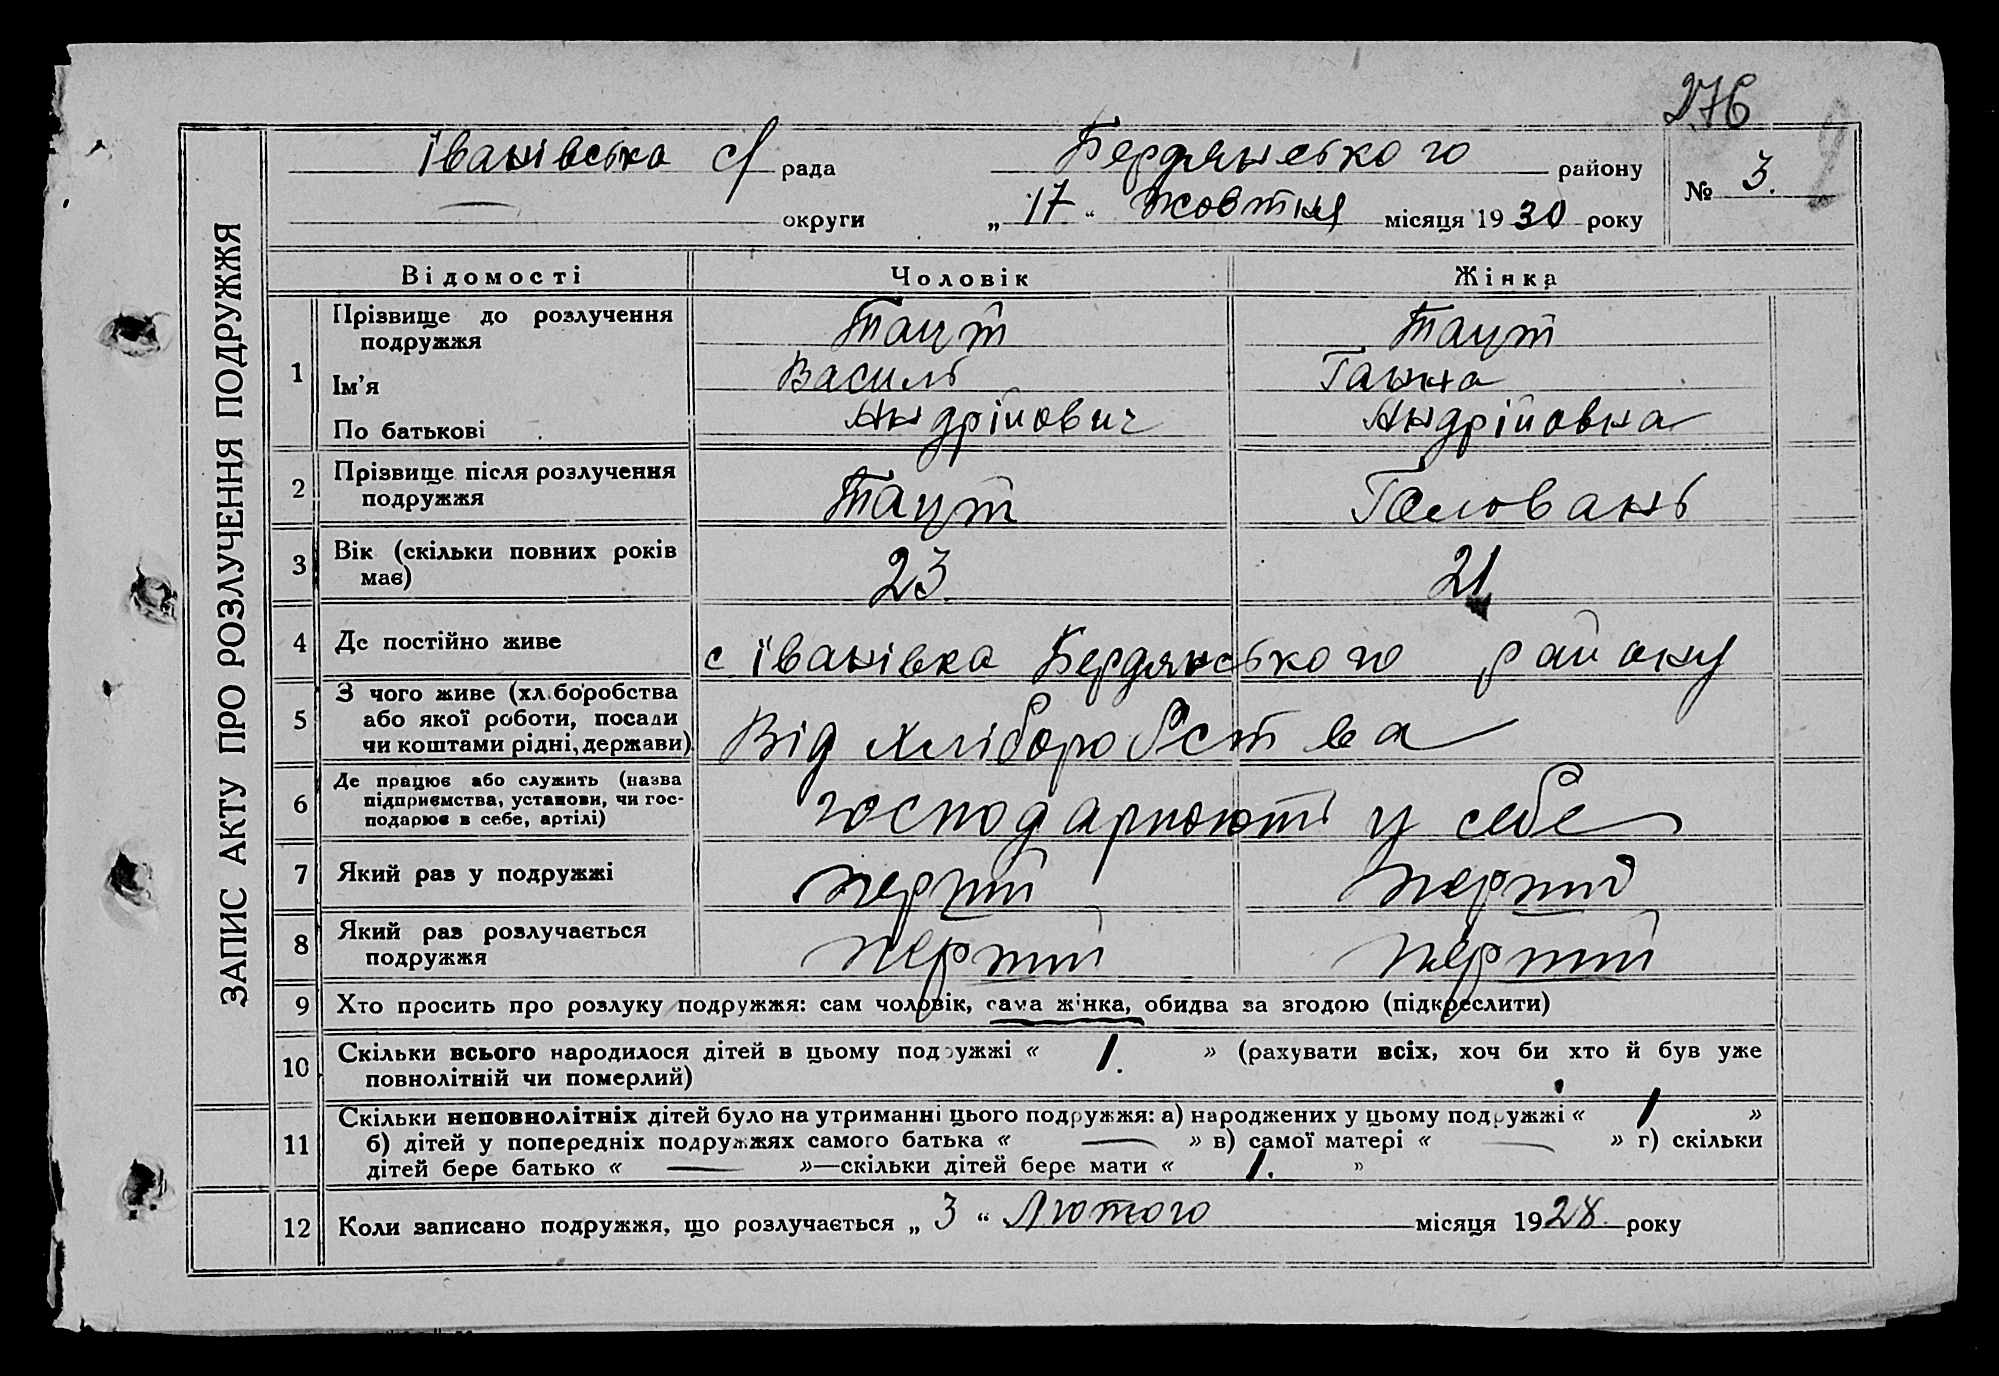 276
Іванівська с/рада Бердянського району № 3.
округи „17“ жовтня місяця 1930 року
ЗАПИС АКТУ ПРО РОЗЛУЧЕННЯ ПОДРУЖЖЯ
Відомості Чоловік Жінка
1 Прізвище до розлучення Таут Таут
подружжя
Ім’я Василь Ганна
По батькові Андрійович Андрійовна
2 Прізвище після розлучення
подружжя Таут Головань
3 Вік (скільки повних років 23 21
має)
4 Де постійно живе с Іванівка Бердянського району
5 З чого живе (хліборобства
або якої роботи, посади Від хліборобства
чи коштами рідні, держави)
6 Де працює або служить (назва
підприємства, установи, чи гос- господарюють у себе
подарює в себе, артілі)
7 Який раз у подружжі перший перший
8 Який раз розлучається
подружжя перший перший
9 Хто просить про розлуку подружжя: сам чоловік, сама жінка, обидва за згодою (підкреслити)
10 Скільки всього народилося дітей в цьому подружжі « 1. » (рахувати всіх, хоч би хто й був уже
повнолітній чи померлий)
11 Скільки неповнолітніх дітей було на утриманні цього подружжя: а) народжених у цьому подружжі « 1 »
б) дітей у попередніх подружжях самого батька « — » в) самої матері « — » г) скільки
дітей бере батько « — »—скільки дітей бере мати « 1. »
12 Коли записано подружжя, що розлучається „3“ Лютого місяця 1928 року